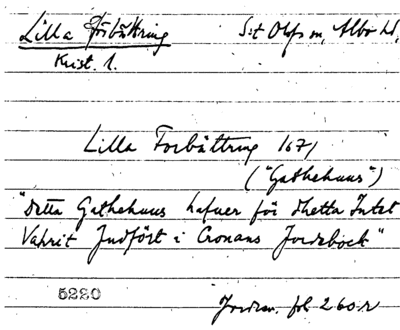 Lilla Förbättring S:t Olofs sn, Albo hd,
Krist. l.
Lilla Forbättring 1671
("Gathehuus")
"Detta Gathehuus hafuer för thetta Intet
Vahrit Judfört i Cronans Jordebock"
5220
Jordrev. fol 260 r